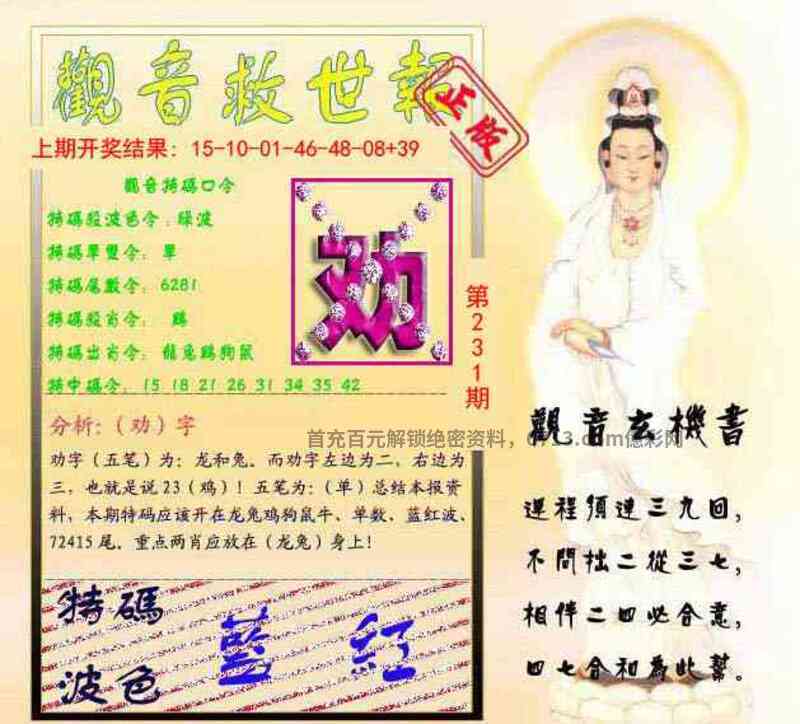 觀音救世報
正版
上期开奖结果：15-10-01-46-48-08+39
觀音特碼口令
特碼殺波色令：綠波
特碼單雙令：單
特碼尾數令：6281
特碼殺肖令： 鷄
特碼出肖令：龍兔鷄狗鼠
特中碼令：15 18 21 26 31 34 35 42
劝
第231期
分析：（劝）字
劝字（五笔）为：龙和兔．而劝字左边为二，右边为
三，也就是说23（鸡）！五笔为：（单）总结本报资
料，本期特码应该开在龙兔鸡狗鼠牛、单数．蓝红波、
72415尾．重点两肖应放在（龙兔）身上！
特碼
波色
藍 紅
首充百元解锁绝密资料，
億彩网
觀音玄機書
運程須連三九回，
不問拙二從三七，
相伴二四必合意，
四七合和為此幫。